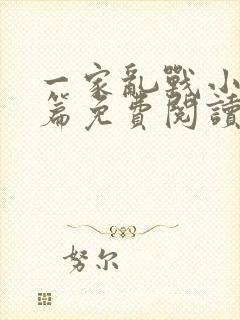 一家亂戰小
篇免費閱讀
努尔